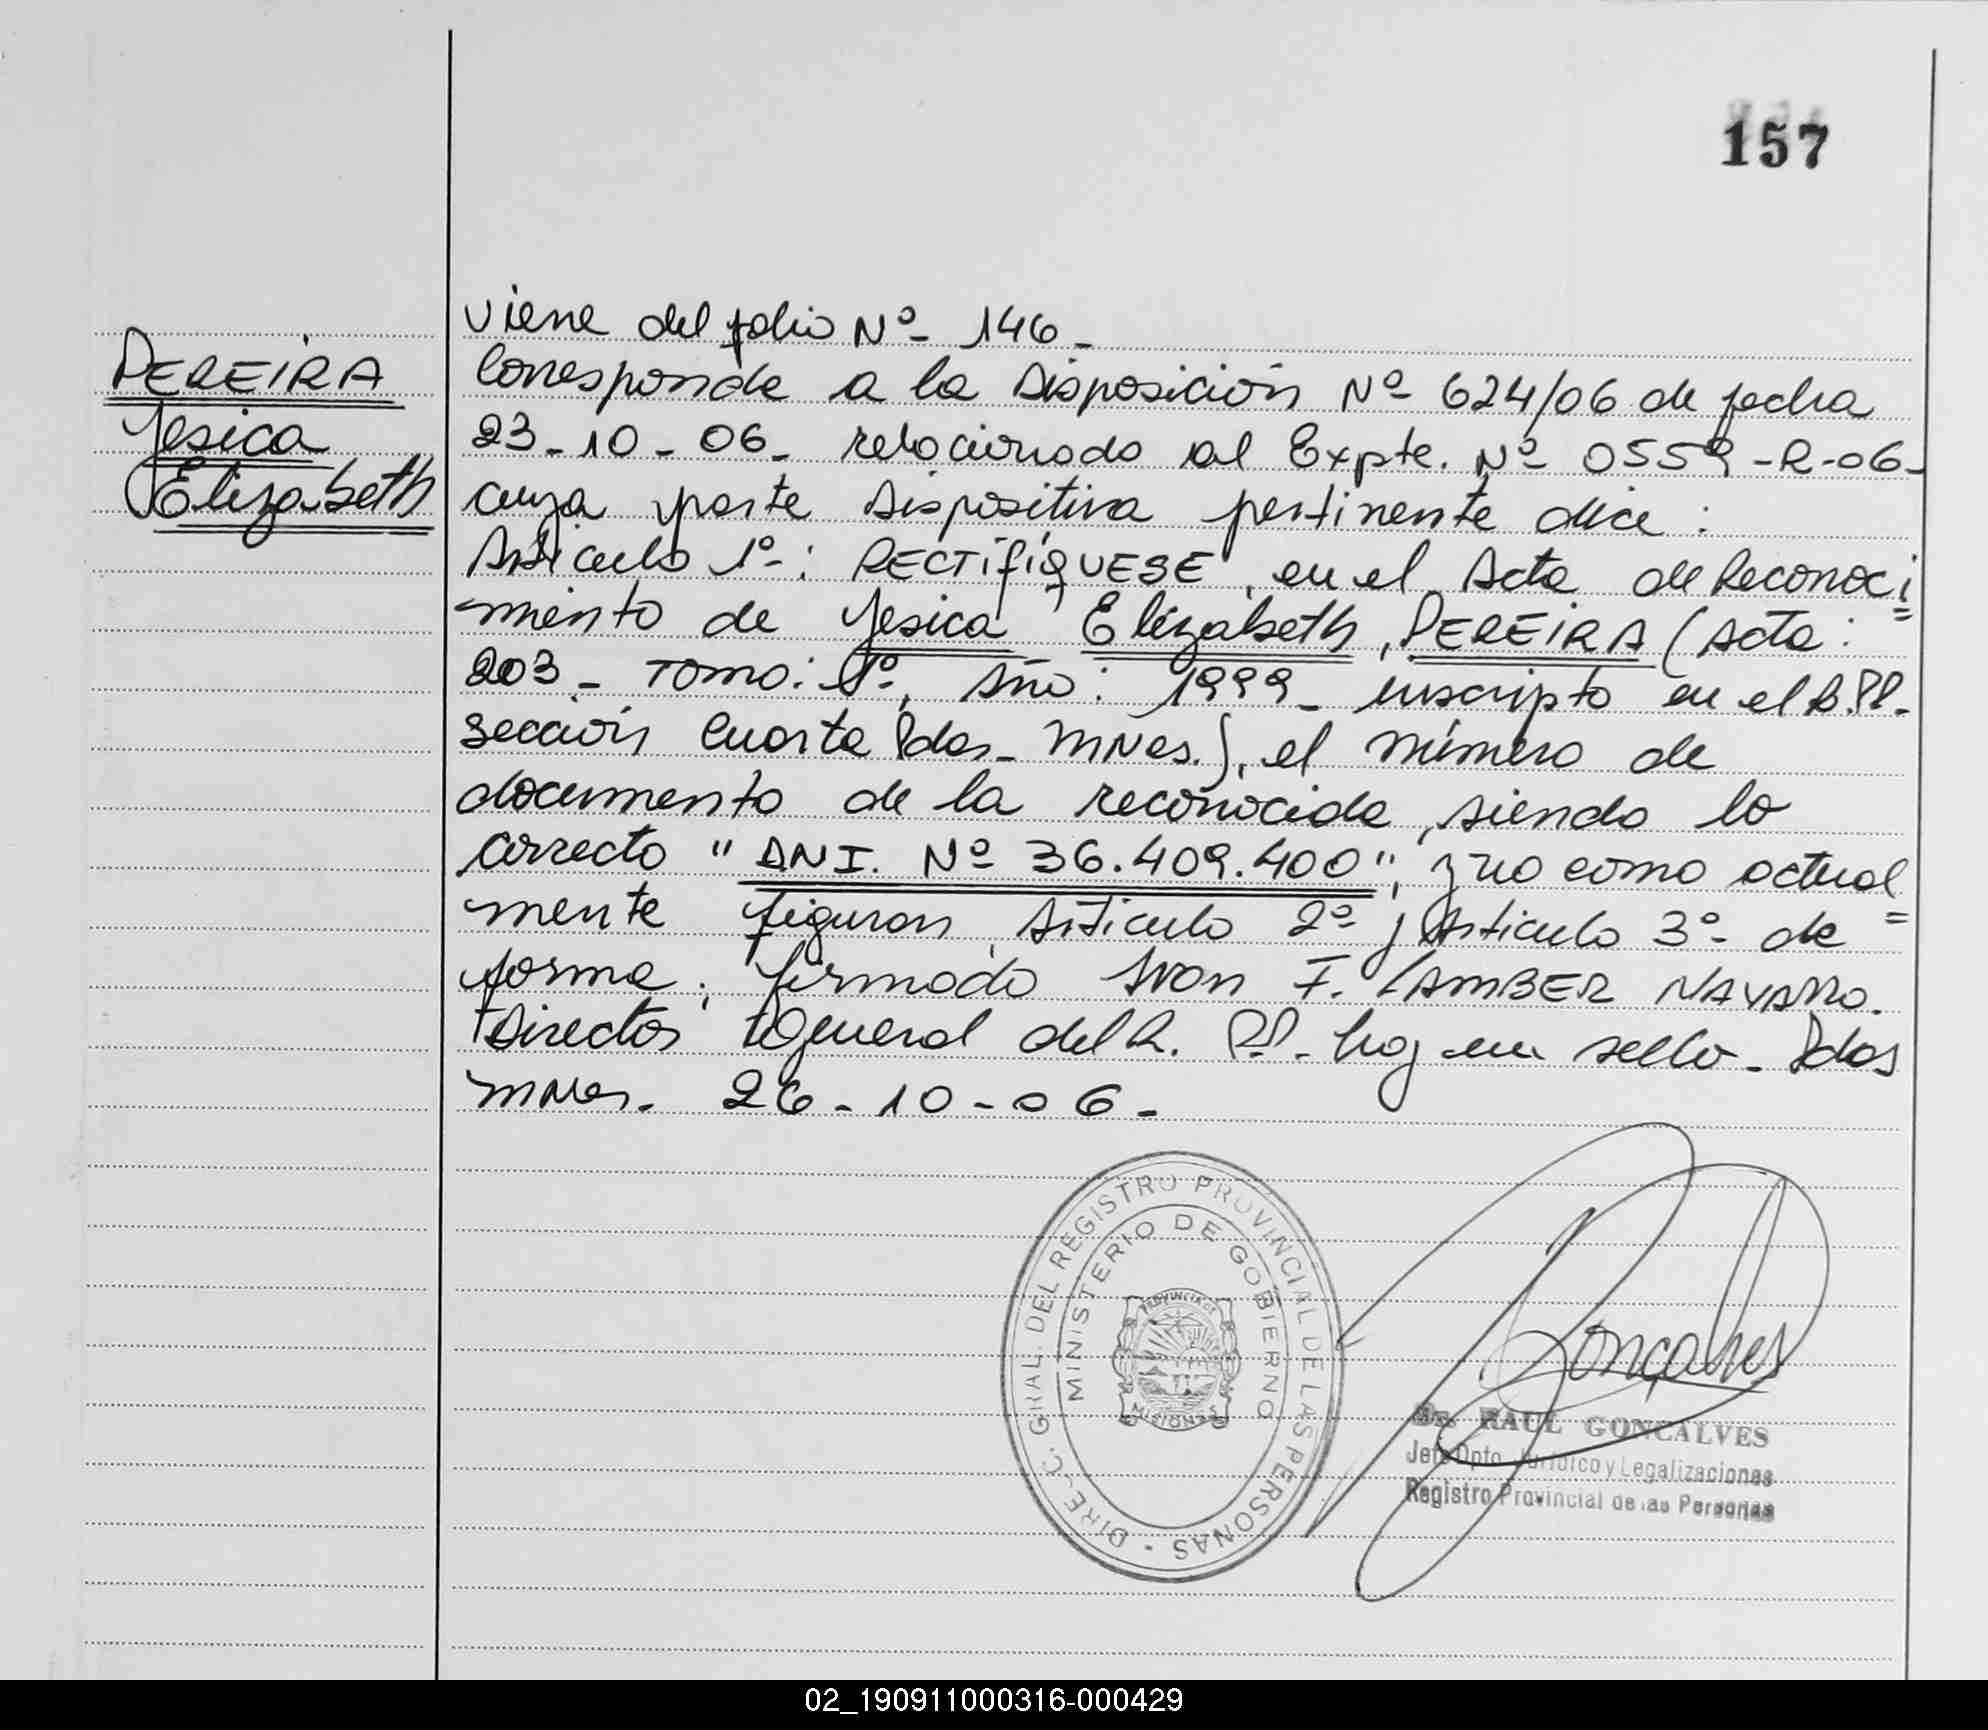 157
PEREIRA
Jesica
Elizabeth
viene del folio Nº- 146-
Corresponde a la Disposición Nº 624/06 de fecha
23-10-06- relacionado al Expte. Nº 0559-R-06-
cuya parte dispositiva pertinente dice:
Artículo 1º-: RECTIFÍQUESE, en el Acta de Reconoci=
miento de Jesica Elizabeth, PEREIRA (Acta:
203- TOMO: 1º, Año: 1999- inscripto en el R.PP.-
sección Cuarta Pdas- MNes.), el número de
documento de la reconocida, siendo lo
correcto "DNI. Nº 36.409.400", y no como actual=
mente figuran. Artículo 2º y Artículo 3º- de
forma; firmado Ivan F. LAMBER NAVARRO.
Director General del R. PP.- hay un sello- Pdas
MNes- 26-10-06-
DIREC. GRAL. DEL REGISTRO PROVINCIAL DE LAS PERSONAS -
MINISTERIO DE GOBIERNO
PROVINCIA DE
MISIONES
Goncalves
Dr. RAUL GONCALVES
Jefe Dpto. Jurídico y Legalizaciones
Registro Provincial de las Personas
02_190911000316-000429